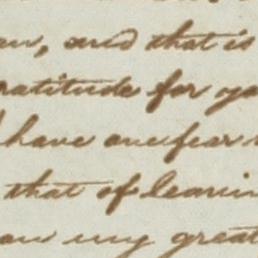 an, and that is
ratitude for yo
have one fear
that of leavin
an my great